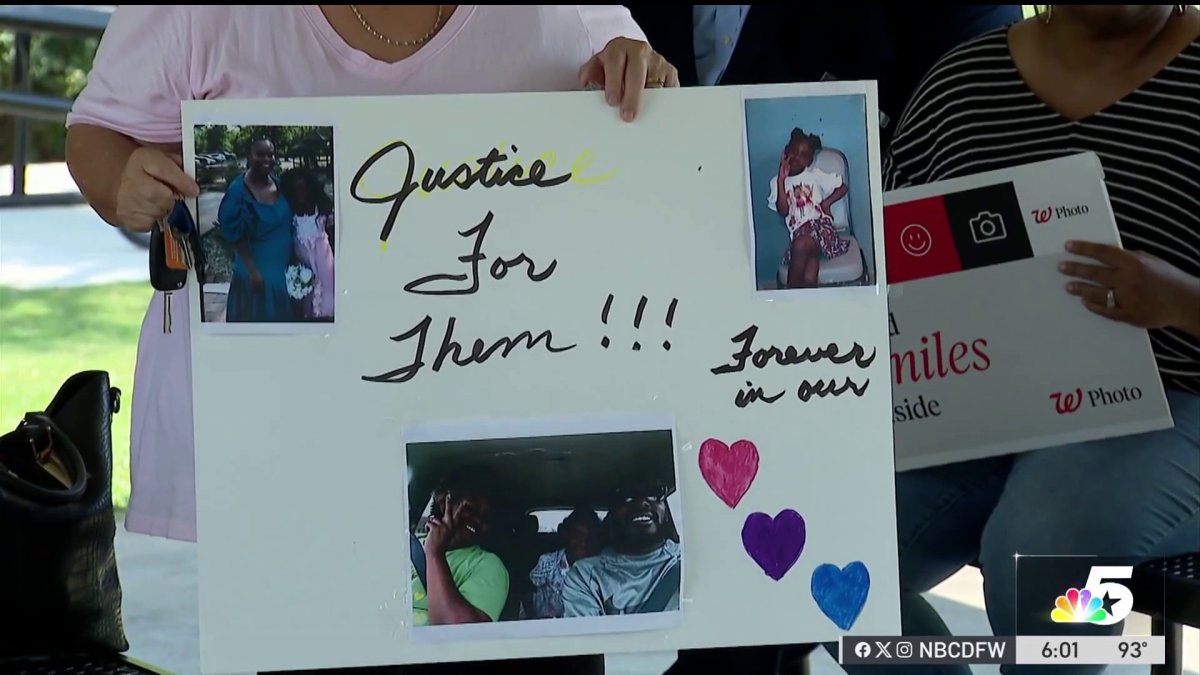 Justice
For
Them !!!
Forever
in our
Photo
miles
side
Photo
5
NBCDFW
6:01 93°